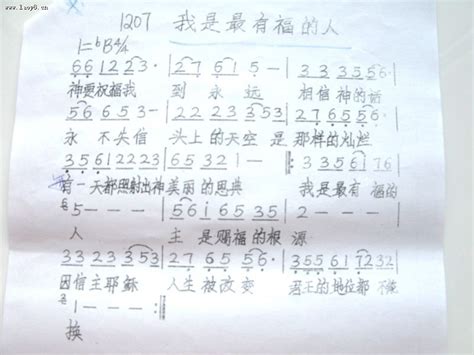 www.luoyo.cn
1207 我是最有福的人
1=ᵇB4/4
661223· | 27615 - | 333535 56· |
神要祝福我 到永远 相信神的话
566553 | 2223353 |
永不失信 头上的天空是 那样的灿烂
35612223 | 6532 1 - | 3356176
有一天都照射出神美丽的恩典 我是最有福的
6 5 - - - | 56i6535 | 2 - - - |
人 主是赐福的根源
33233353 | 276556· | 3355617232
因信主耶稣 人生被改变 君王的地位都不能
1 - - -
换